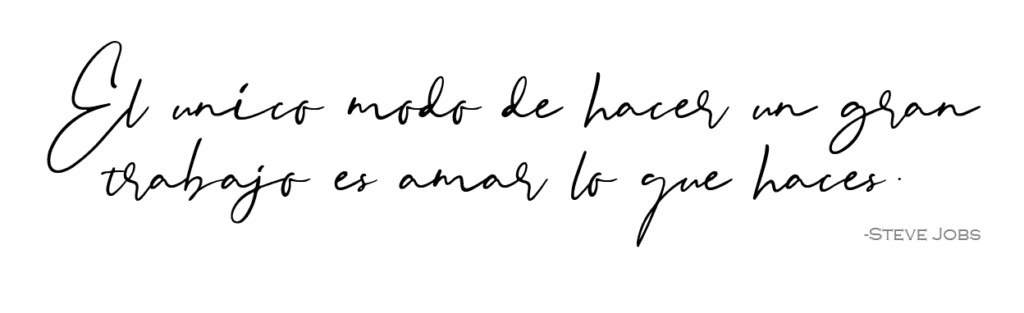 El unico modo de hacer un gran
trabajo es amar lo que haces.
-Steve Jobs